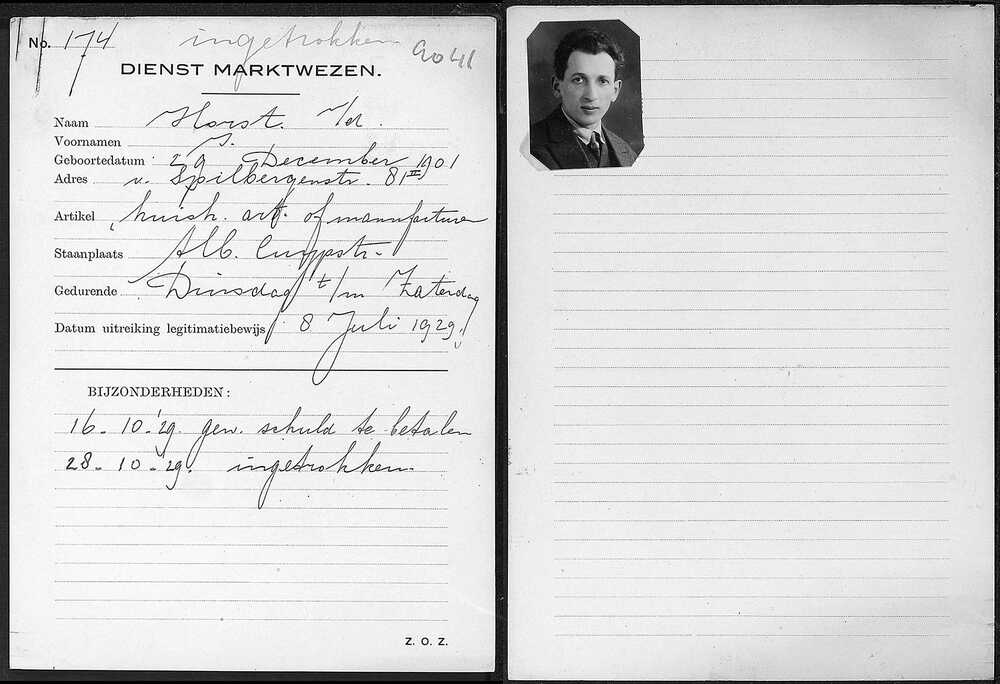 No. 174 ingetrokken 9041
DIENST MARKTWEZEN.
Naam Horst. v/d.
Voornamen S.
Geboortedatum 29 December 1901
Adres v. Spilbergenstr. 81 II
Artikel huish. art. of manufacturen
Staanplaats Alb. Cuypstr.
Gedurende Dinsdag t/m Zaterdag
Datum uitreiking legitimatiebewijs 8 Juli 1929.
BIJZONDERHEDEN:
16-10-'29. gew. schuld te betalen
28-10-'29. ingetrokken.
Z. O. Z.